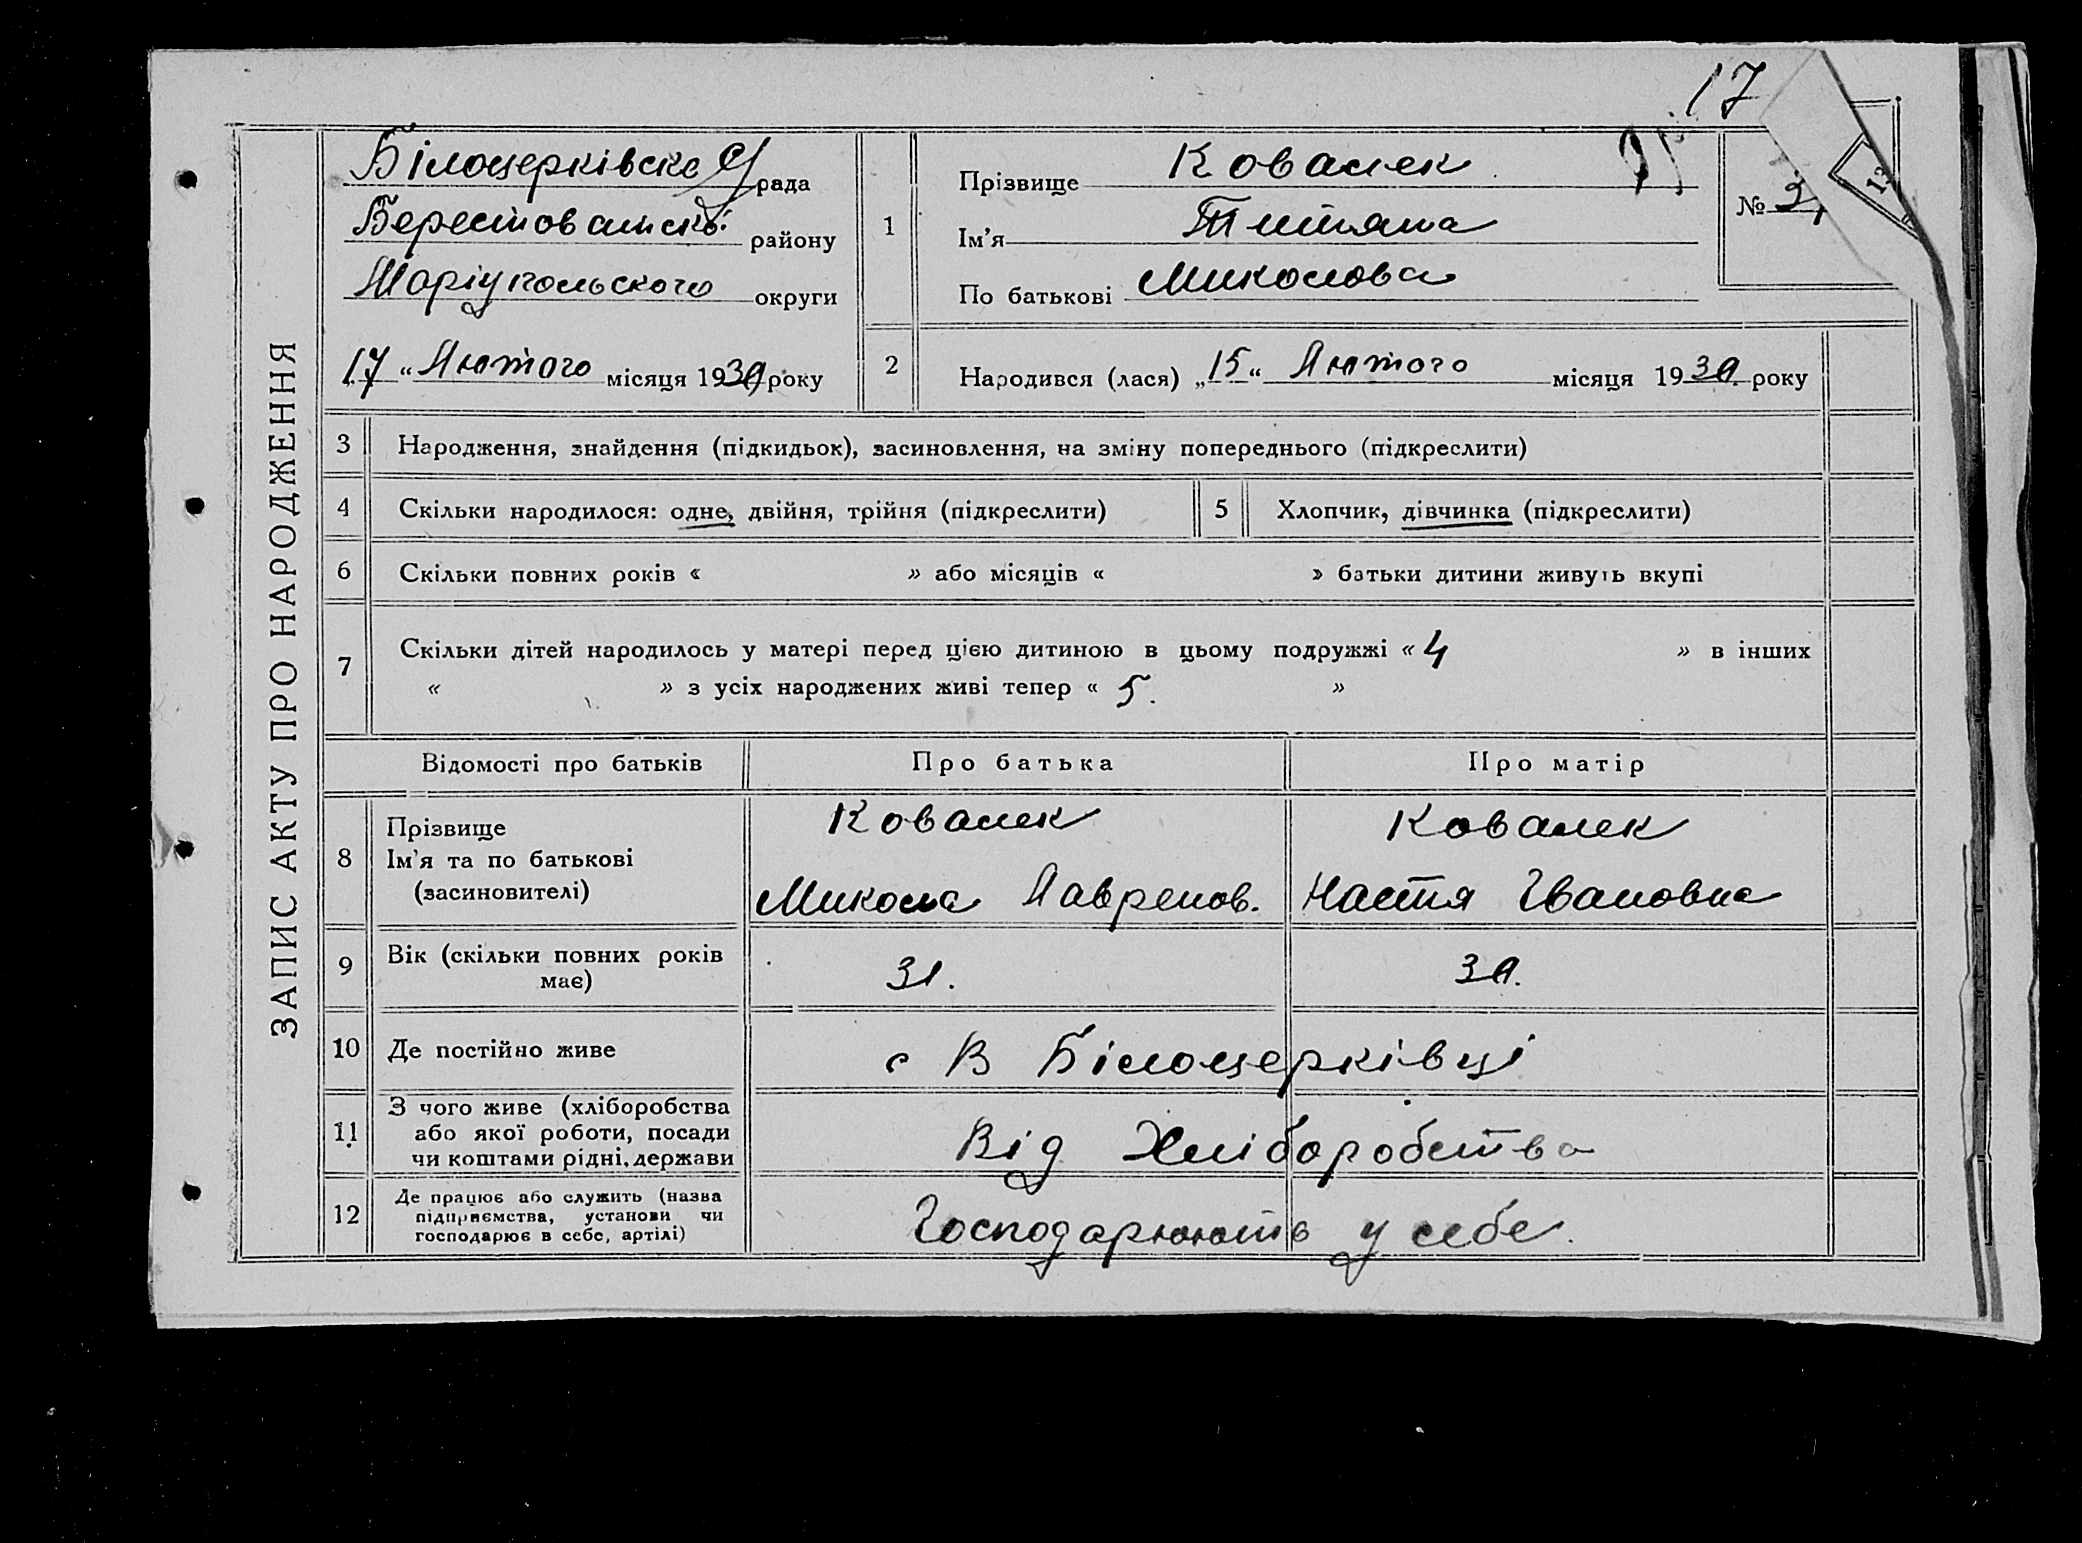 17
ЗАПИС АКТУ ПРО НАРОДЖЕННЯ
Білоцерківска С/рада
Берестоватской району
Маріупольского округи
17 " Лютого місяця 1930 року
1
Прізвище Ковалек
Ім'я Титяна
По батькові Миколова
№ 3
13
2
Народився (лася) „15“ Лютого місяця 1930 року
3 Народження, знайдення (підкидьок), засиновлення, на зміну попереднього (підкреслити)
4 Скільки народилося: одне, двійня, трійня (підкреслити)
5 Хлопчик, дівчинка (підкреслити)
6 Скільки повних років « » або місяців « » батьки дитини живуть вкупі
7 Скільки дітей народилось у матері перед цією дитиною в цьому подружжі « 4 » в інших
« » з усіх народжених живі тепер « 5. »
Відомості про батьків Про батька Про матір
8 Прізвище
Ім'я та по батькові
(засиновителі)
Ковалек
Микола Лавренов.
Ковалек
Настя Івановна
9 Вік (скільки повних років
має)
31. 30.
10 Де постійно живе с В Білоцерківці
11 З чого живе (хліборобства
або якої роботи, посади
чи коштами рідні, держави
Від Хліборобства
12 Де працює або служить (назва
підприємства, установи чи
господарює в себе, артілі)
Господарюють у себе.